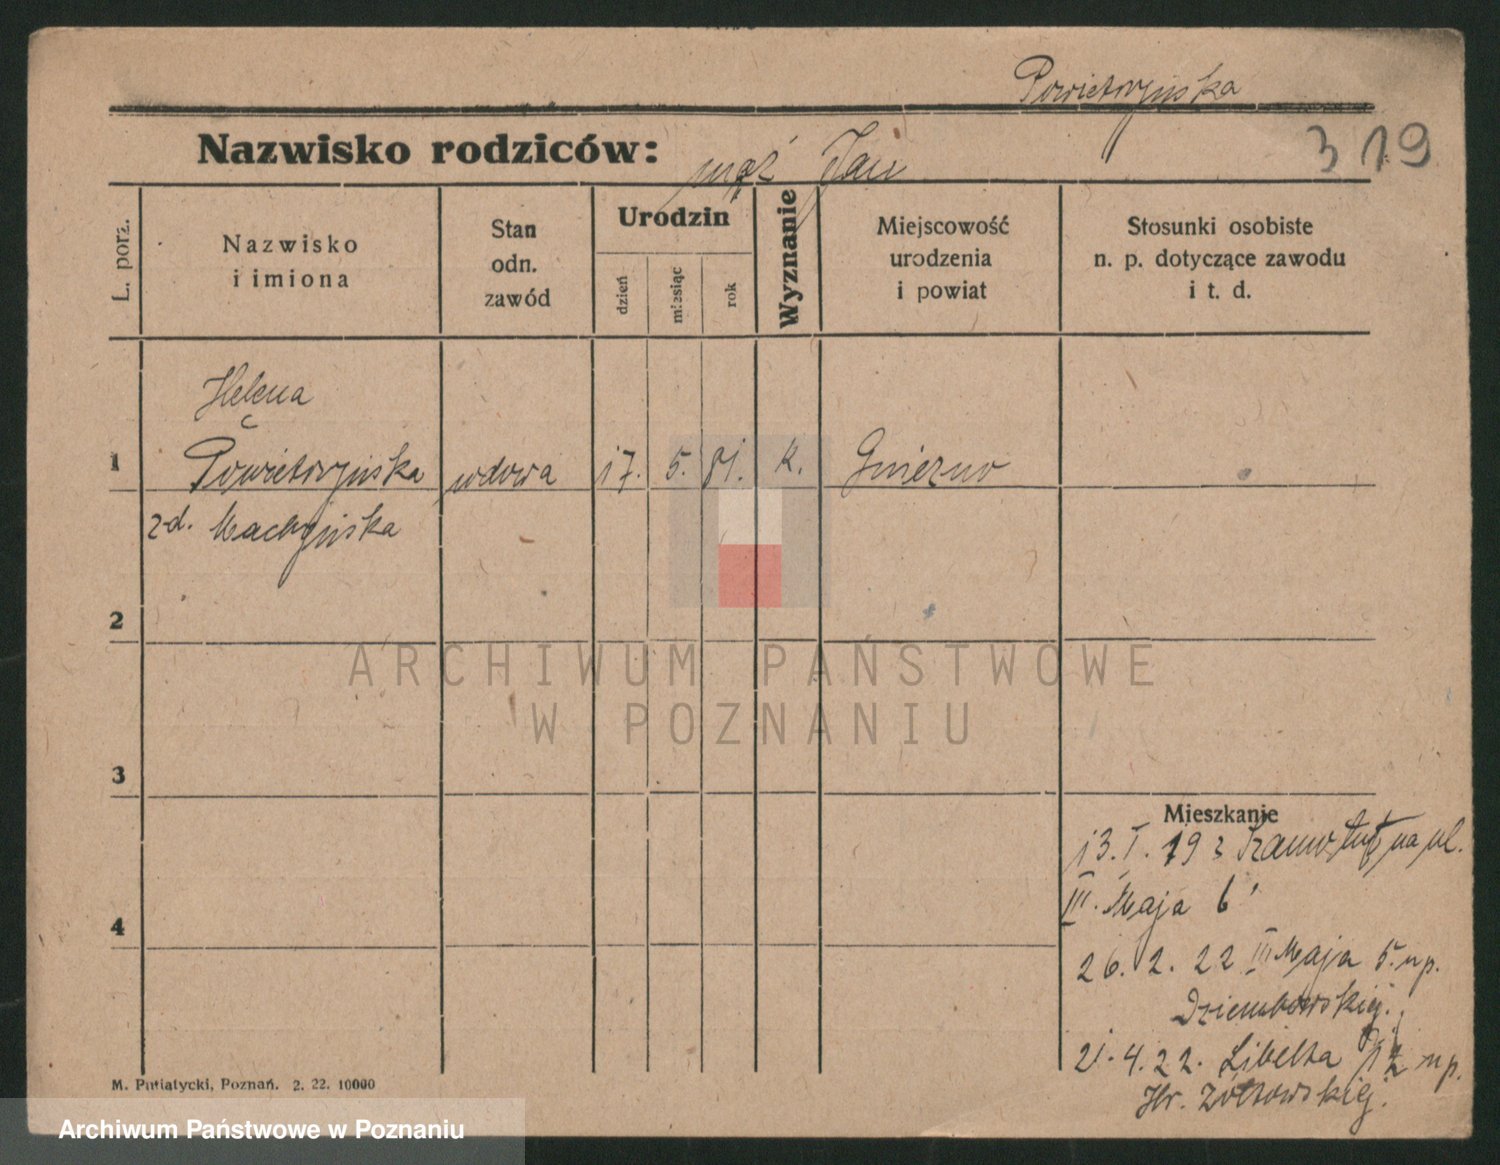 Powietrzyńska
Nazwisko rodziców: mąż Jan
319
L. porz.
Nazwisko
i imiona
Stan
odn.
zawód
Urodzin
dzień
miesiąc
rok
Wyznanie
Miejscowość
urodzenia
i powiat
Stosunki osobiste
n. p. dotyczące zawodu
i t. d.
Helena
1 Powietrzyńska wdowa 17. 5. 81. k. Gniezno
zd.
2
ARCHIWUM PAŃSTWOWE
W POZNANIU
3
Mieszkanie
13. I. 19 na ul.
III. Maja 6
4
26. 2. 22 III Maja 5. u p.
Dziembowskiej.
21. 4. 22. Libelta 12 u p.
Hr. Żółtowskiej.
M. Putiatycki, Poznań. 2. 22. 10000
Archiwum Państwowe w Poznaniu